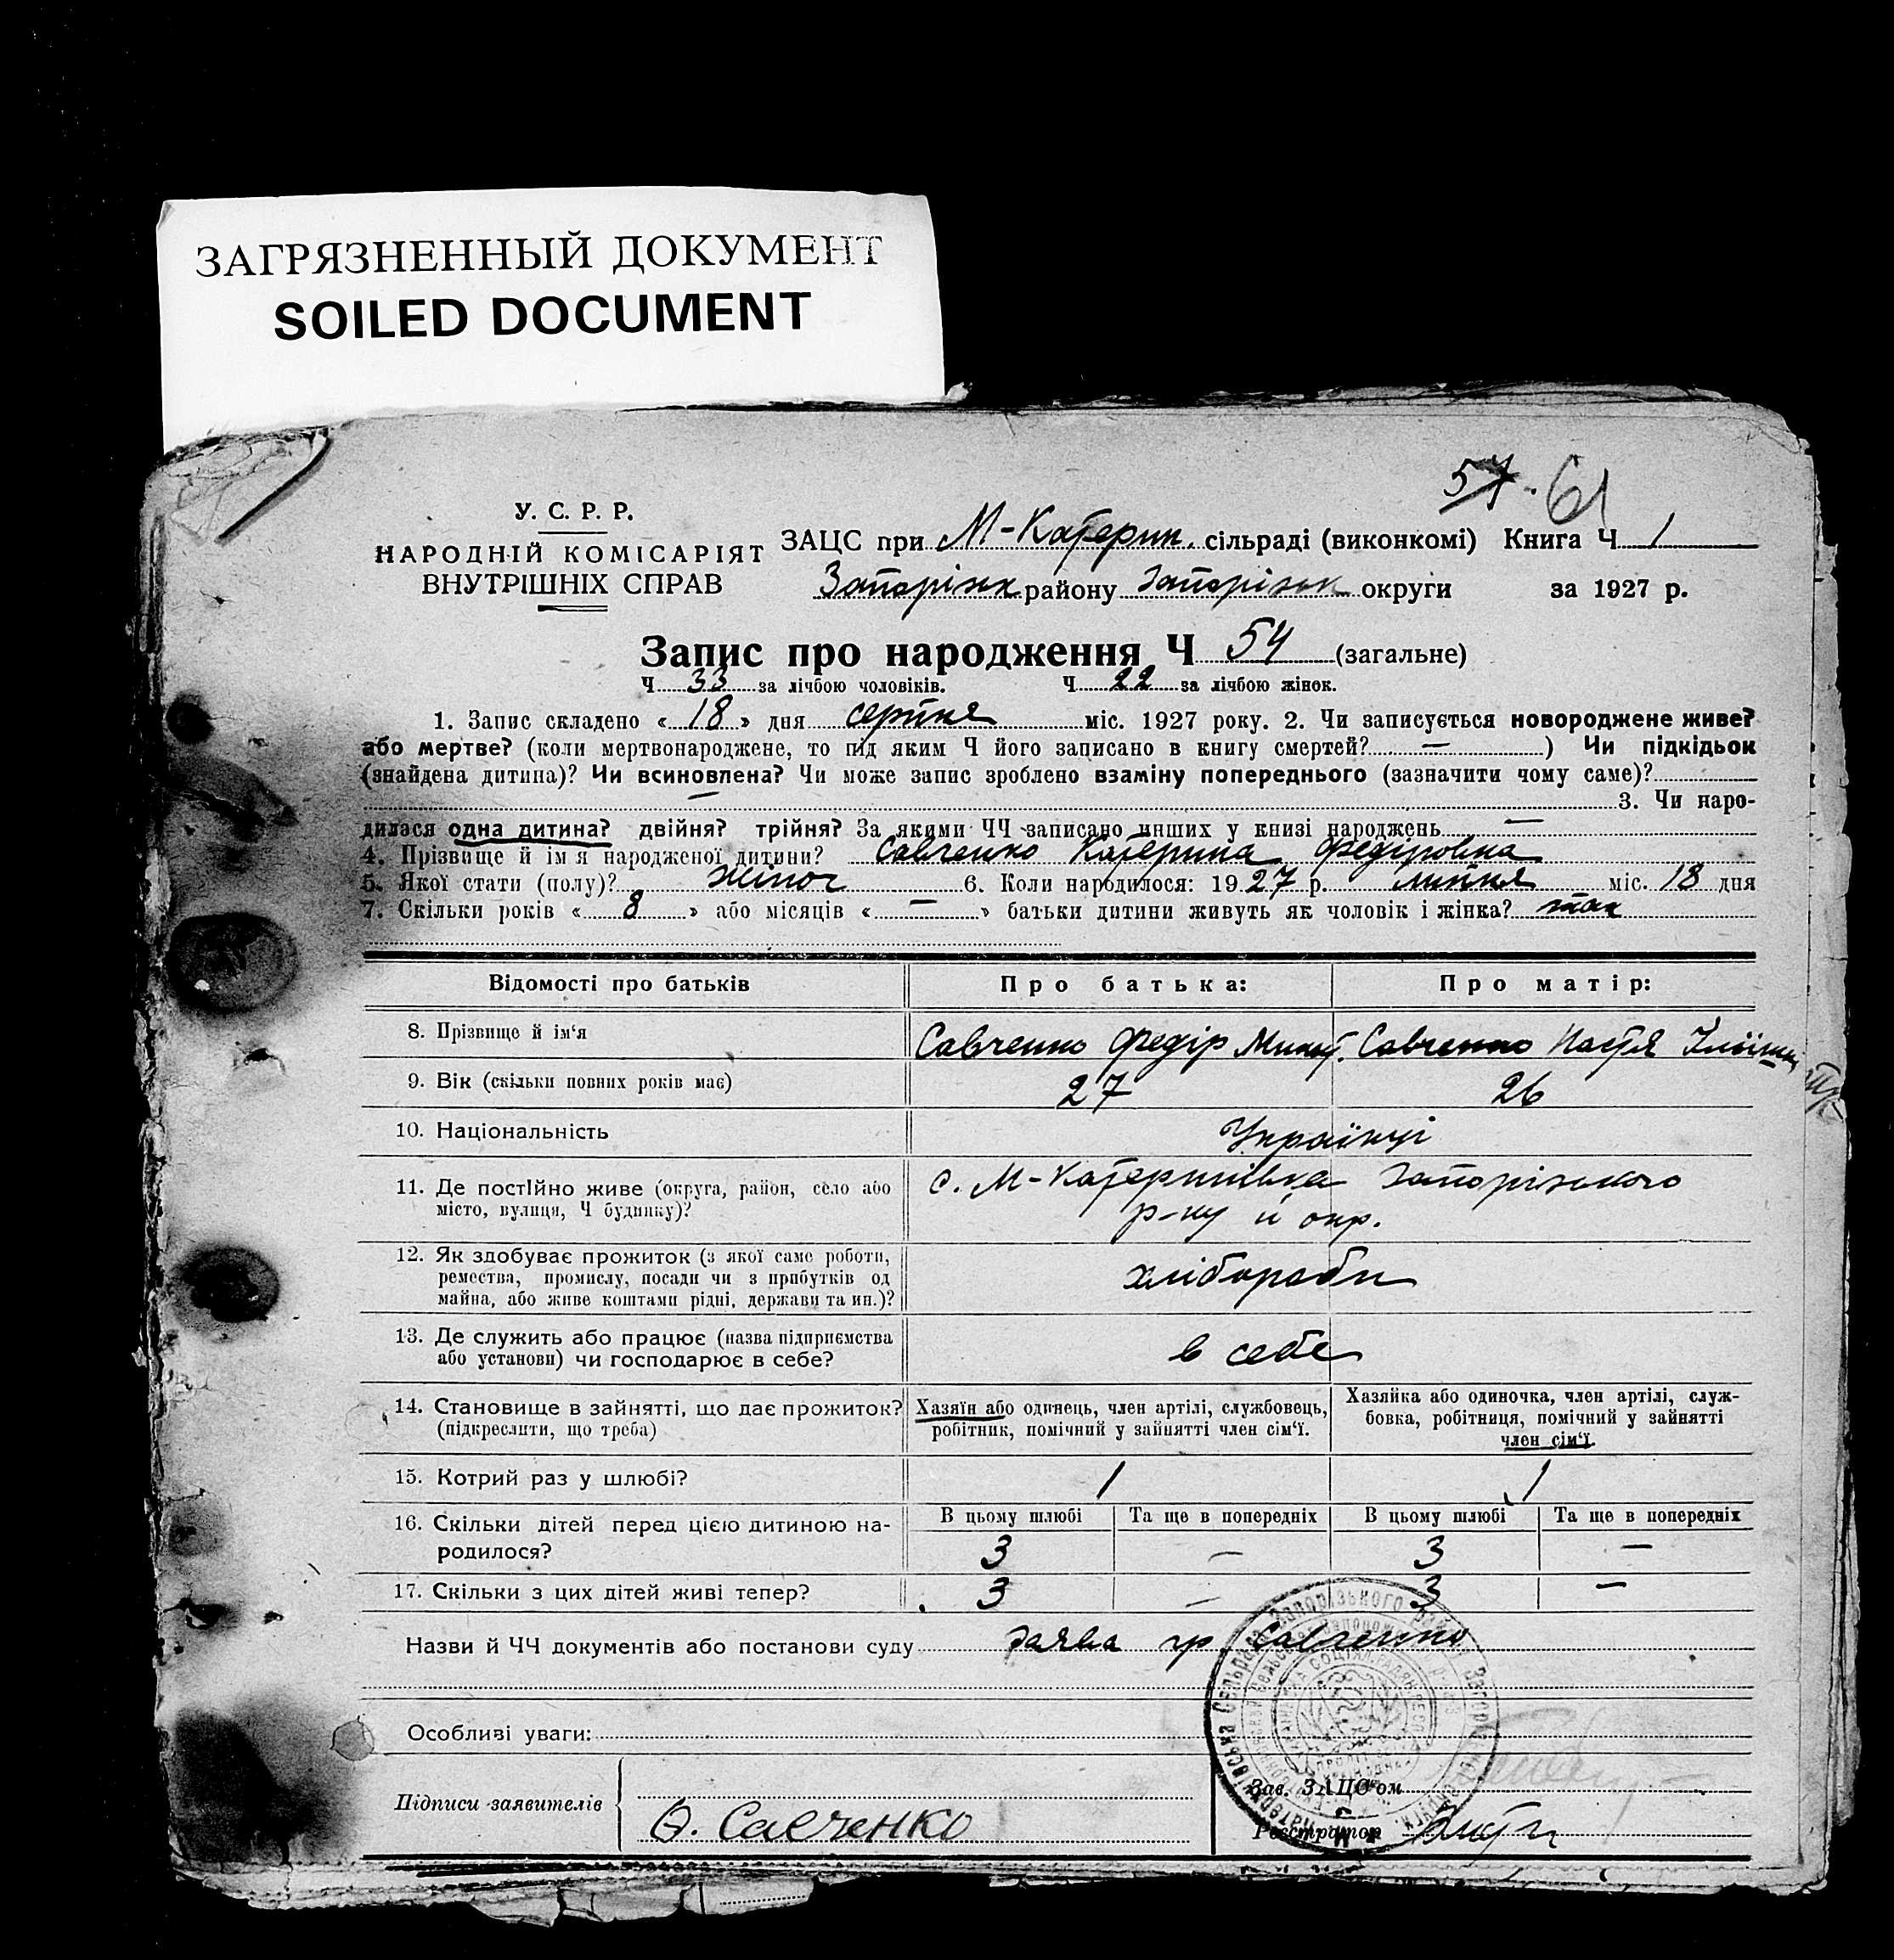 ЗАГРЯЗНЕННЫЙ ДОКУМЕНТ
SOILED DOCUMENT
61
У. С. Р. Р.
НАРОДНІЙ КОМІСАРІЯТ
ВНУТРІШНІХ СПРАВ
ЗАЦС при М-Катерин. сільраді (виконкомі) Книга Ч 1
Запорізьк району Запорізьк округи за 1927 р.
Запис про народження Ч 54 (загальне)
Ч 33 за лічбою чоловіків. Ч 22 за лічбою жінок.
1. Запис складено « 18 » дня серпня міс. 1927 року. 2. Чи записується новороджене живе?
або мертве? (коли мертвонароджене, то під яким Ч його записано в книгу смертей? — ) Чи підкідьок
(знайдена дитина)? Чи всиновлена? Чи може запис зроблено взаміну попереднього (зазначити чому саме)?
— 3. Чи наро-
дилася одна дитина? двійня? трійня? За якими ЧЧ записано инших у книзі народжень —
4. Прізвище й ім'я народженої дитини? Савченко Катерина Федіровна
5. Якої стати (полу)? жіноч 6. Коли народилося: 1927 р. липня міс. 18 дня
7. Скільки років « 8 » або місяців « — » батьки дитини живуть як чоловік і жінка? так
Відомості про батьків Про батька: Про матір:
8. Прізвище й ім'я Савченко Федір Микит. Савченко Настя
9. Вік (скільки повних років має) 27 26
10. Національність Українці
11. Де постійно живе (округа, район, село або
місто, вулиця, Ч будинку)?
с. М-Катеринівка Запорізького
р-ну й окр.
12. Як здобуває прожиток (з якої саме роботи,
ремества, промислу, посади чи з прибутків од
майна, або живе коштами рідні, держави та ин.)?
хлібороби
13. Де служить або працює (назва підприємства
або установи) чи господарює в себе?
в себе
14. Становище в зайнятті, що дає прожиток?
(підкреслити, що треба)
Хазяїн або одинець, член артілі, службовець,
робітник, помічний у зайнятті член сім'ї.
Хазяйка або одиночка, член артілі, служ-
бовка, робітниця, помічний у зайнятті
член сім'ї.
15. Котрий раз у шлюбі? 1 1
В цьому шлюбі Та ще в попередніх В цьому шлюбі Та ще в попередніх
16. Скільки дітей перед цією дитиною на-
родилося?
3 — 3 —
17. Скільки з цих дітей живі тепер? 3 — 3 —
Назви й ЧЧ документів або постанови суду Заява гр. Савченко
Особливі уваги:
Підписи заявителів Ѳ. Савченко
Зав. ЗАЦС'ом
Реєстратор